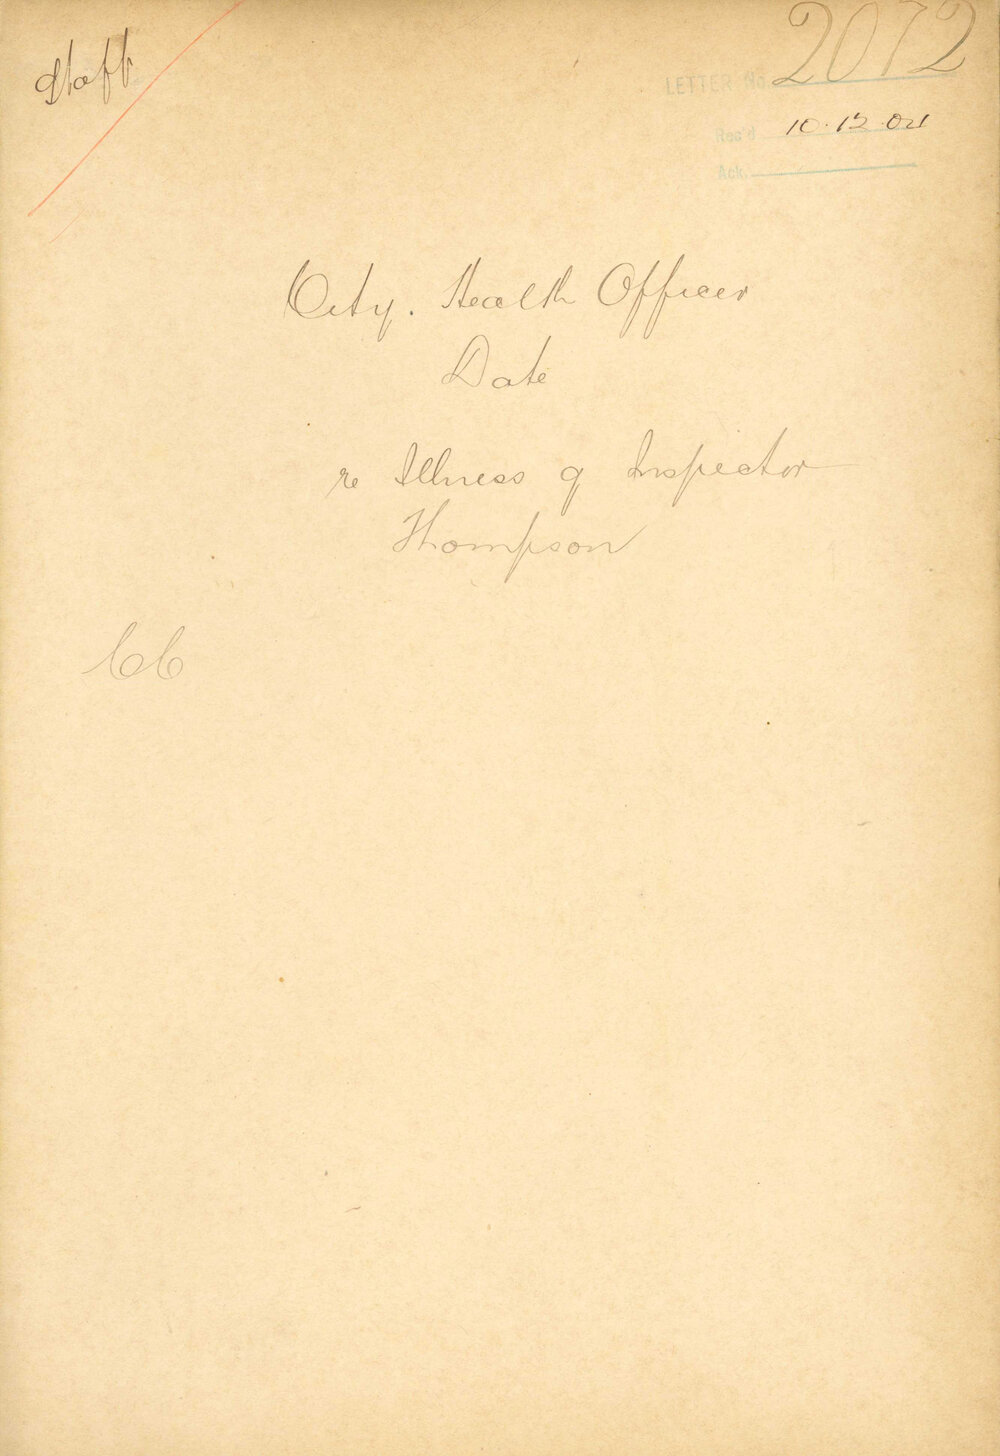 Staff
LETTER No. 2072
Rec'd 10.12.04
Ack.
City. Health Officer
Date
re Illness of Inspector
Thompson
CC